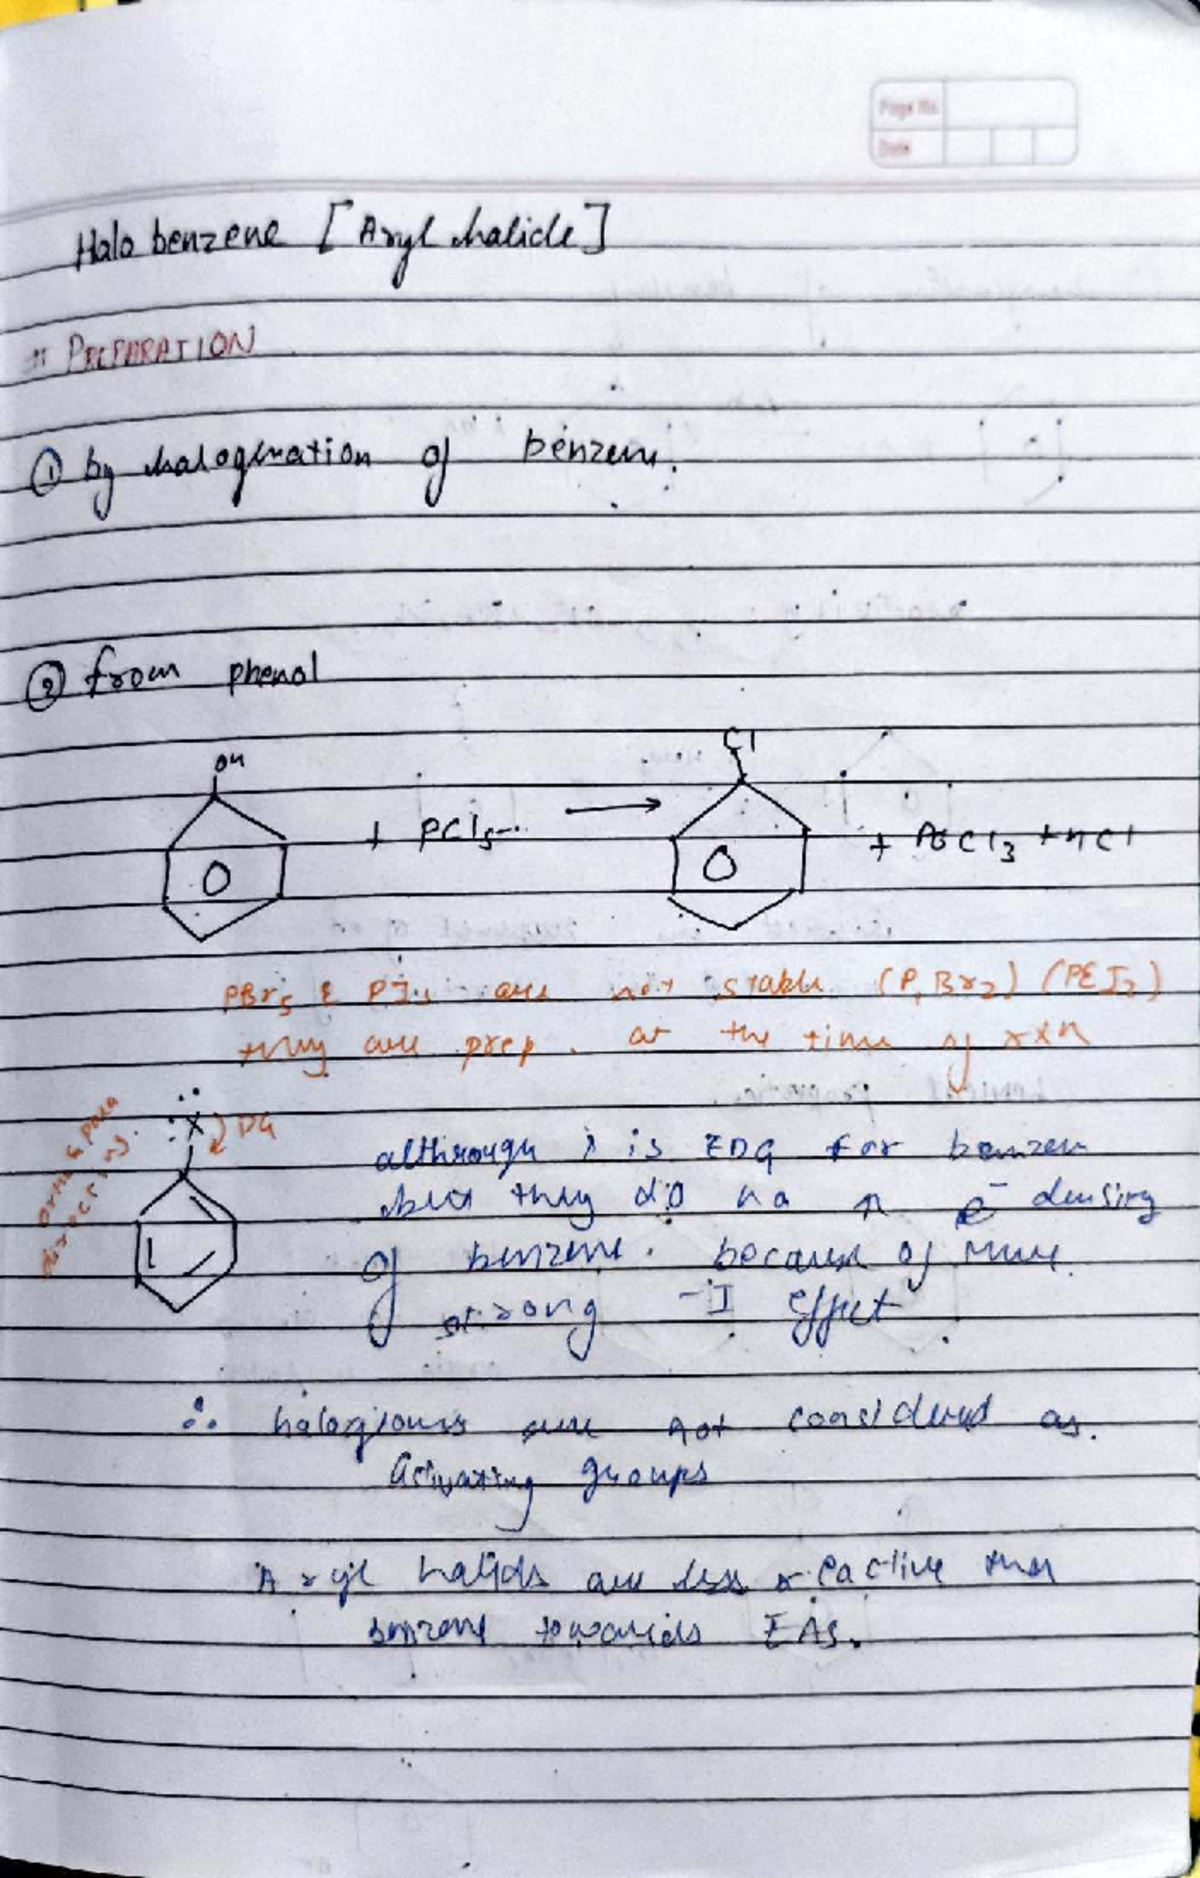 Page No.
Date
Halo benzene [Aryl halide]
:: PREPARATION
① by halogenation of benzene.
② from phenol
OH
Cl
+ PCl5 → + POCl3 + HCl
PBr5 & PI5 are not stable (P, Br2) (P I2)
they are prep. at the time of rxn
X DG
ortho & para
directing.
althrough X is EDG for benzen
but they do no ↑ e⁻ density
of benzene. because of more
strong -I effect
∴ halogens are not considered as.
Activating groups
Aryl halids are less reactive than
benzene towards EAS.